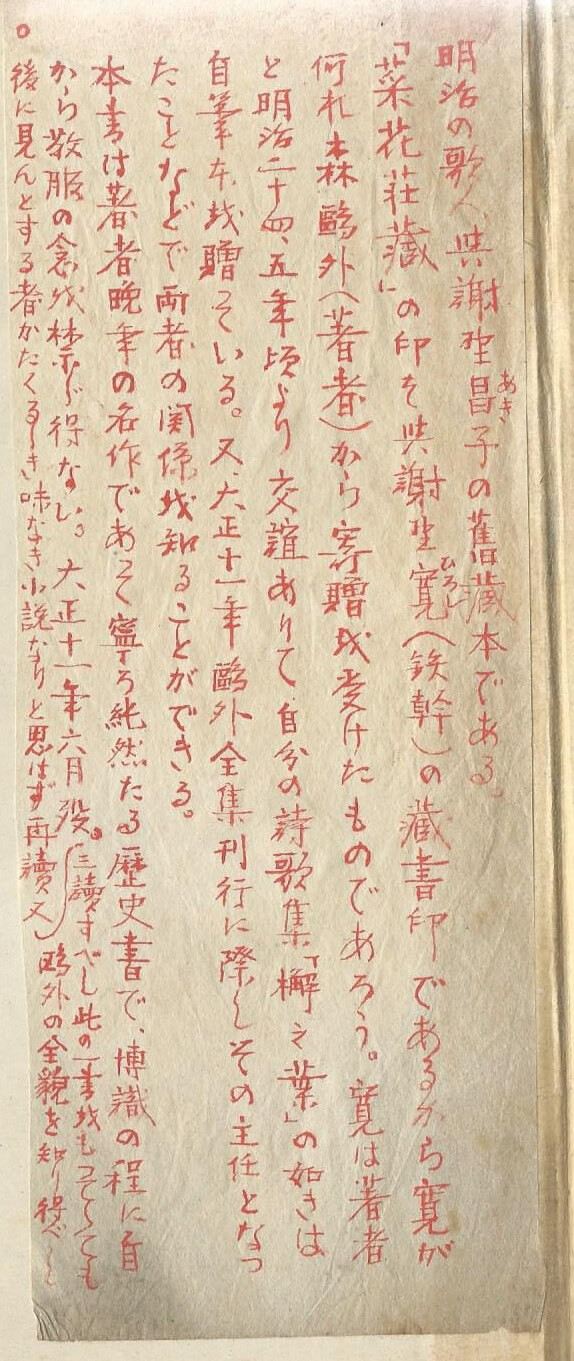 明治の歌人、與謝野晶子の舊藏本である。
あき
「菜花荘藏」の印を與謝野寛(鉄幹)の藏書印であるから寛が
ひろし
何れ森鷗外(著者)から寄贈を受けたものであろう。寛は著者
と明治二十四、五年頃より交誼ありて、自分の詩歌集「檞之葉」の如きは
自筆本を贈っている。又、大正十一年鷗外全集刊行に際しその主任となつ
たことなどで両者の関係を知ることができる。
本書は著者晩年の名作であって寧ろ純然たる歴史書で、博識の程に自
から敬服の念を禁じ得ない。大正十一年六月歿。
三讀すべし此の一書をもってしても
後に見んとする者かたくるしき味なき小説なりと思はず再讀又
鷗外の全貌を知り得べしと